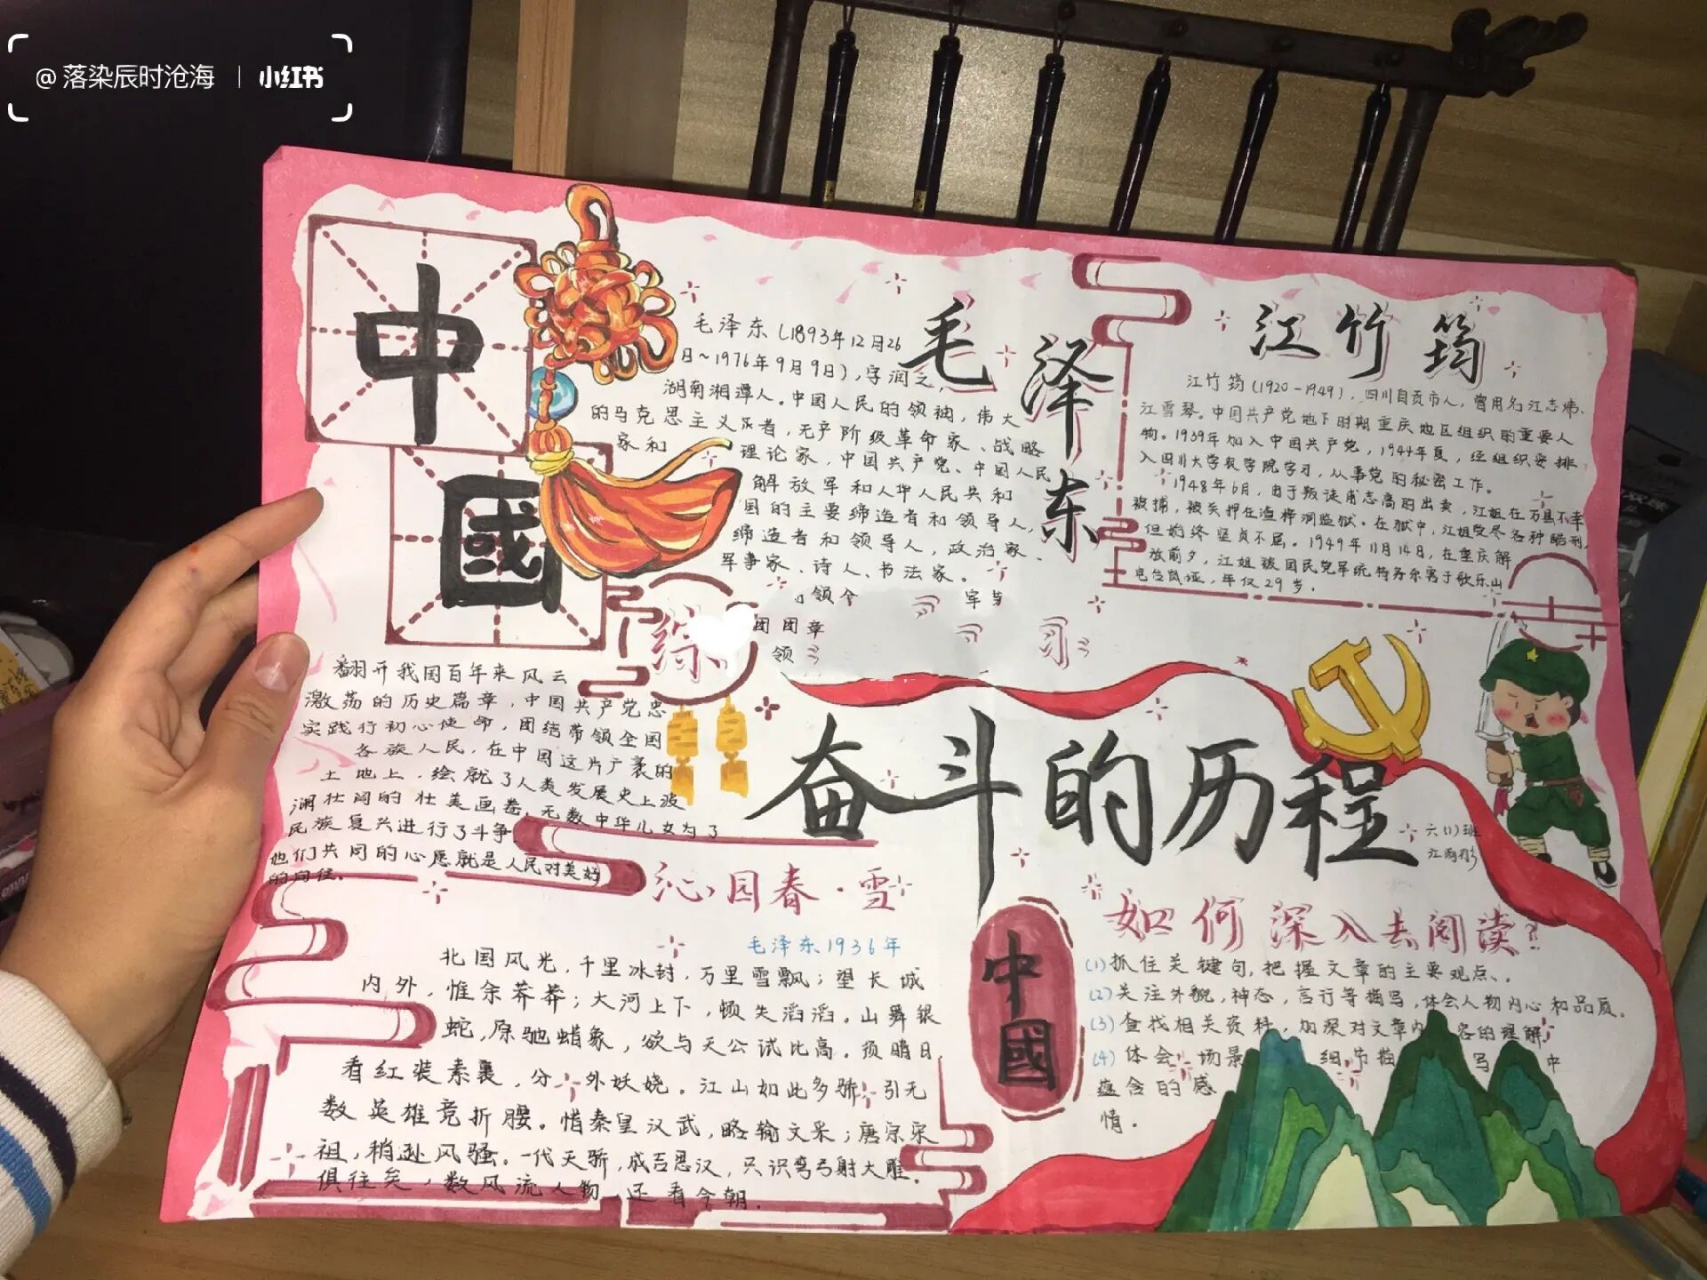 @落染辰时沧海 | 小红书
中
國
毛泽东
毛泽东(1893年12月26
日~1976年9月9日),字润之,
湖南湘潭人。中国人民的领袖,伟大
的马克思主义者,无产阶级革命家、战略
家和 理论家,中国共产党、中国人民
解放军和人华人民共和
国的主要缔造者和领导人,
缔造者和领导人,政治家、
军事家、诗人、书法家。
江竹筠
江竹筠(1920-1949),四川自贡市人,曾用名江志炜、
江雪琴。中国共产党地下时期重庆地区组织的重要人
物。1939年加入中国共产党,1944年夏,经组织安排
入四川大学农学院学习,从事党的秘密工作。
1948年6月,由于叛徒甫志高的出卖,江姐在万县不幸
被捕,被关押在渣滓洞监狱。在狱中,江姐受尽各种酷刑,
但始终坚贞不屈。1949年11月14日,在重庆解
放前夕,江姐被国民党军统特务杀害于歌乐山
电台岚垭,年仅29岁。
综
翻开我国百年来风云
激荡的历史篇章,中国共产党忠
实践行初心使命,团结带领全国
各族人民,在中国这片广袤的
土地上,绘就了人类发展史上波
澜壮阔的壮美画卷,无数中华儿女为了
民族复兴进行了斗争
他们共同的心愿就是人民对美好
的向往。
奋斗的历程
六(1)班
沁园春·雪
毛泽东1936年
北国风光,千里冰封,万里雪飘;望长城
内外,惟余莽莽;大河上下,顿失滔滔。山舞银
蛇,原驰蜡象,欲与天公试比高。须晴日,
看红装素裹,分外妖娆。江山如此多骄,引无
数英雄竞折腰。惜秦皇汉武,略输文采;唐宗宋
祖,稍逊风骚。一代天骄,成吉思汗,只识弯弓射大雕。
俱往矣,数风流人物,还看今朝。
中國
如何深入去阅读?
(1)抓住关键句,把握文章的主要观点、
(2)关注外貌,神态,言行等描写,体会人物内心和品质。
(3)查找相关资料,加深对文章内容的理解
(4)体会场景 细节描写中
蕴含的感
情。